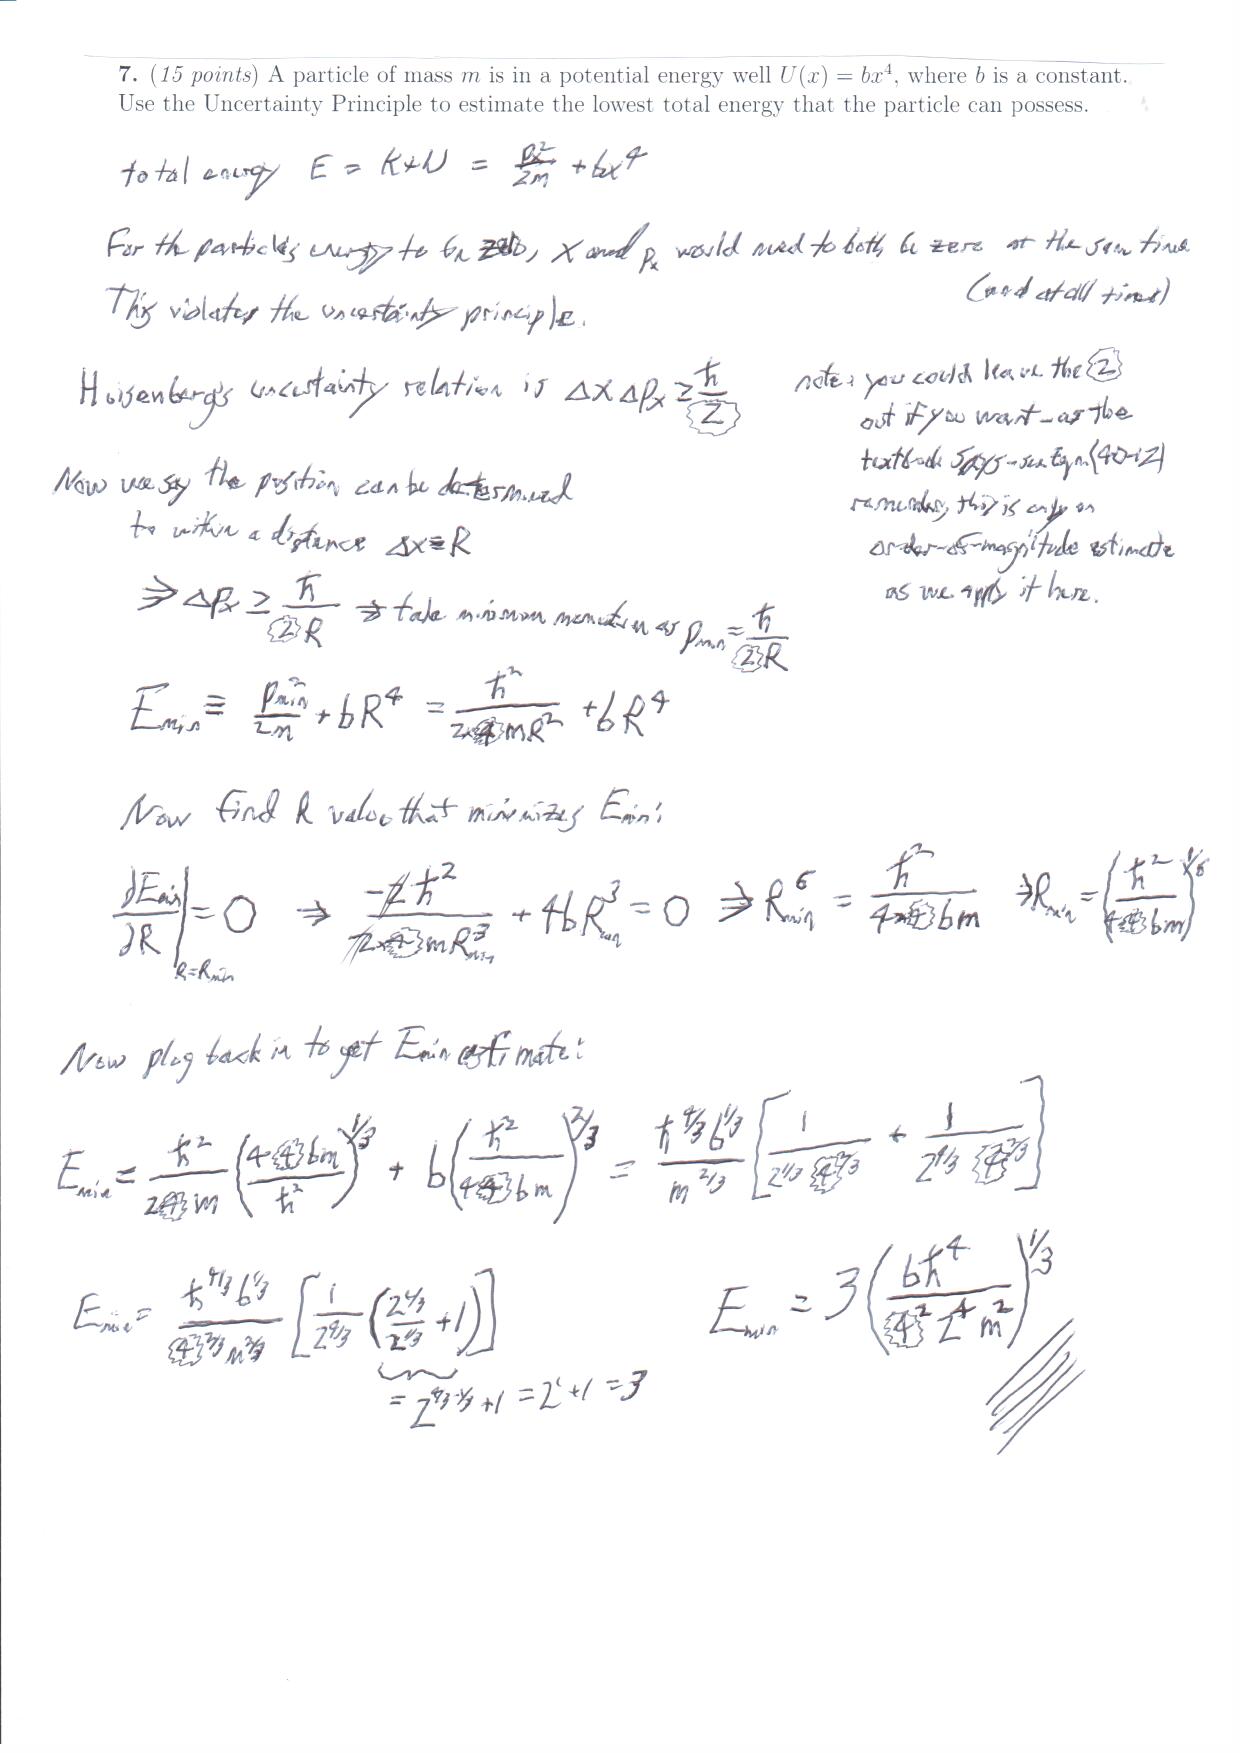 7. (15 points) A particle of mass m is in a potential energy well U(x) = bx⁴, where b is a constant.
Use the Uncertainty Principle to estimate the lowest total energy that the particle can possess.
total energy E = K+U = px²/2m + bx⁴
For the particle's energy to be zero, x and px would need to both be zero at the same time
(and at all times)
This violates the uncertainty principle.
Heisenberg's uncertainty relation is Δx Δpx ≥ ħ/2
note: you could leave the 2
out if you want – as the
textbook says – see Eqn (40-12)
remember, this is only an
order-of-magnitude estimate
as we apply it here.
Now we say the position can be determined
to within a distance Δx ≡ R
⇒ Δpx ≥ ħ/2R ⇒ take minimum momentum as pmin = ħ/2R
Emin ≡ pmin²/2m + bR⁴ = ħ²/2×4mR² + bR⁴
Now find R value that minimizes Emin:
∂Emin/∂R |R=Rmin = 0 ⇒ -2ħ²/2×4mRmin³ + 4bRmin³ = 0 ⇒ Rmin⁶ = ħ²/4×4bm ⇒ Rmin = (ħ²/4×4bm)^1/6
Now plug back in to get Emin estimate:
Emin = ħ²/2×4m (4×4bm/ħ²)^1/3 + b(ħ²/4×4bm)^2/3 = ħ^4/3 b^1/3/m^2/3 [1/2^1/3 4^2/3 + 1/2^4/3 4^2/3]
Emin = ħ^4/3 b^1/3/4^2/3 m^2/3 [1/2^4/3 (2^4/3/2^1/3 + 1)]
= 2^4/3-1/3 + 1 = 2¹ + 1 = 3
Emin = 3 (bħ⁴/4² 2⁴ m²)^1/3